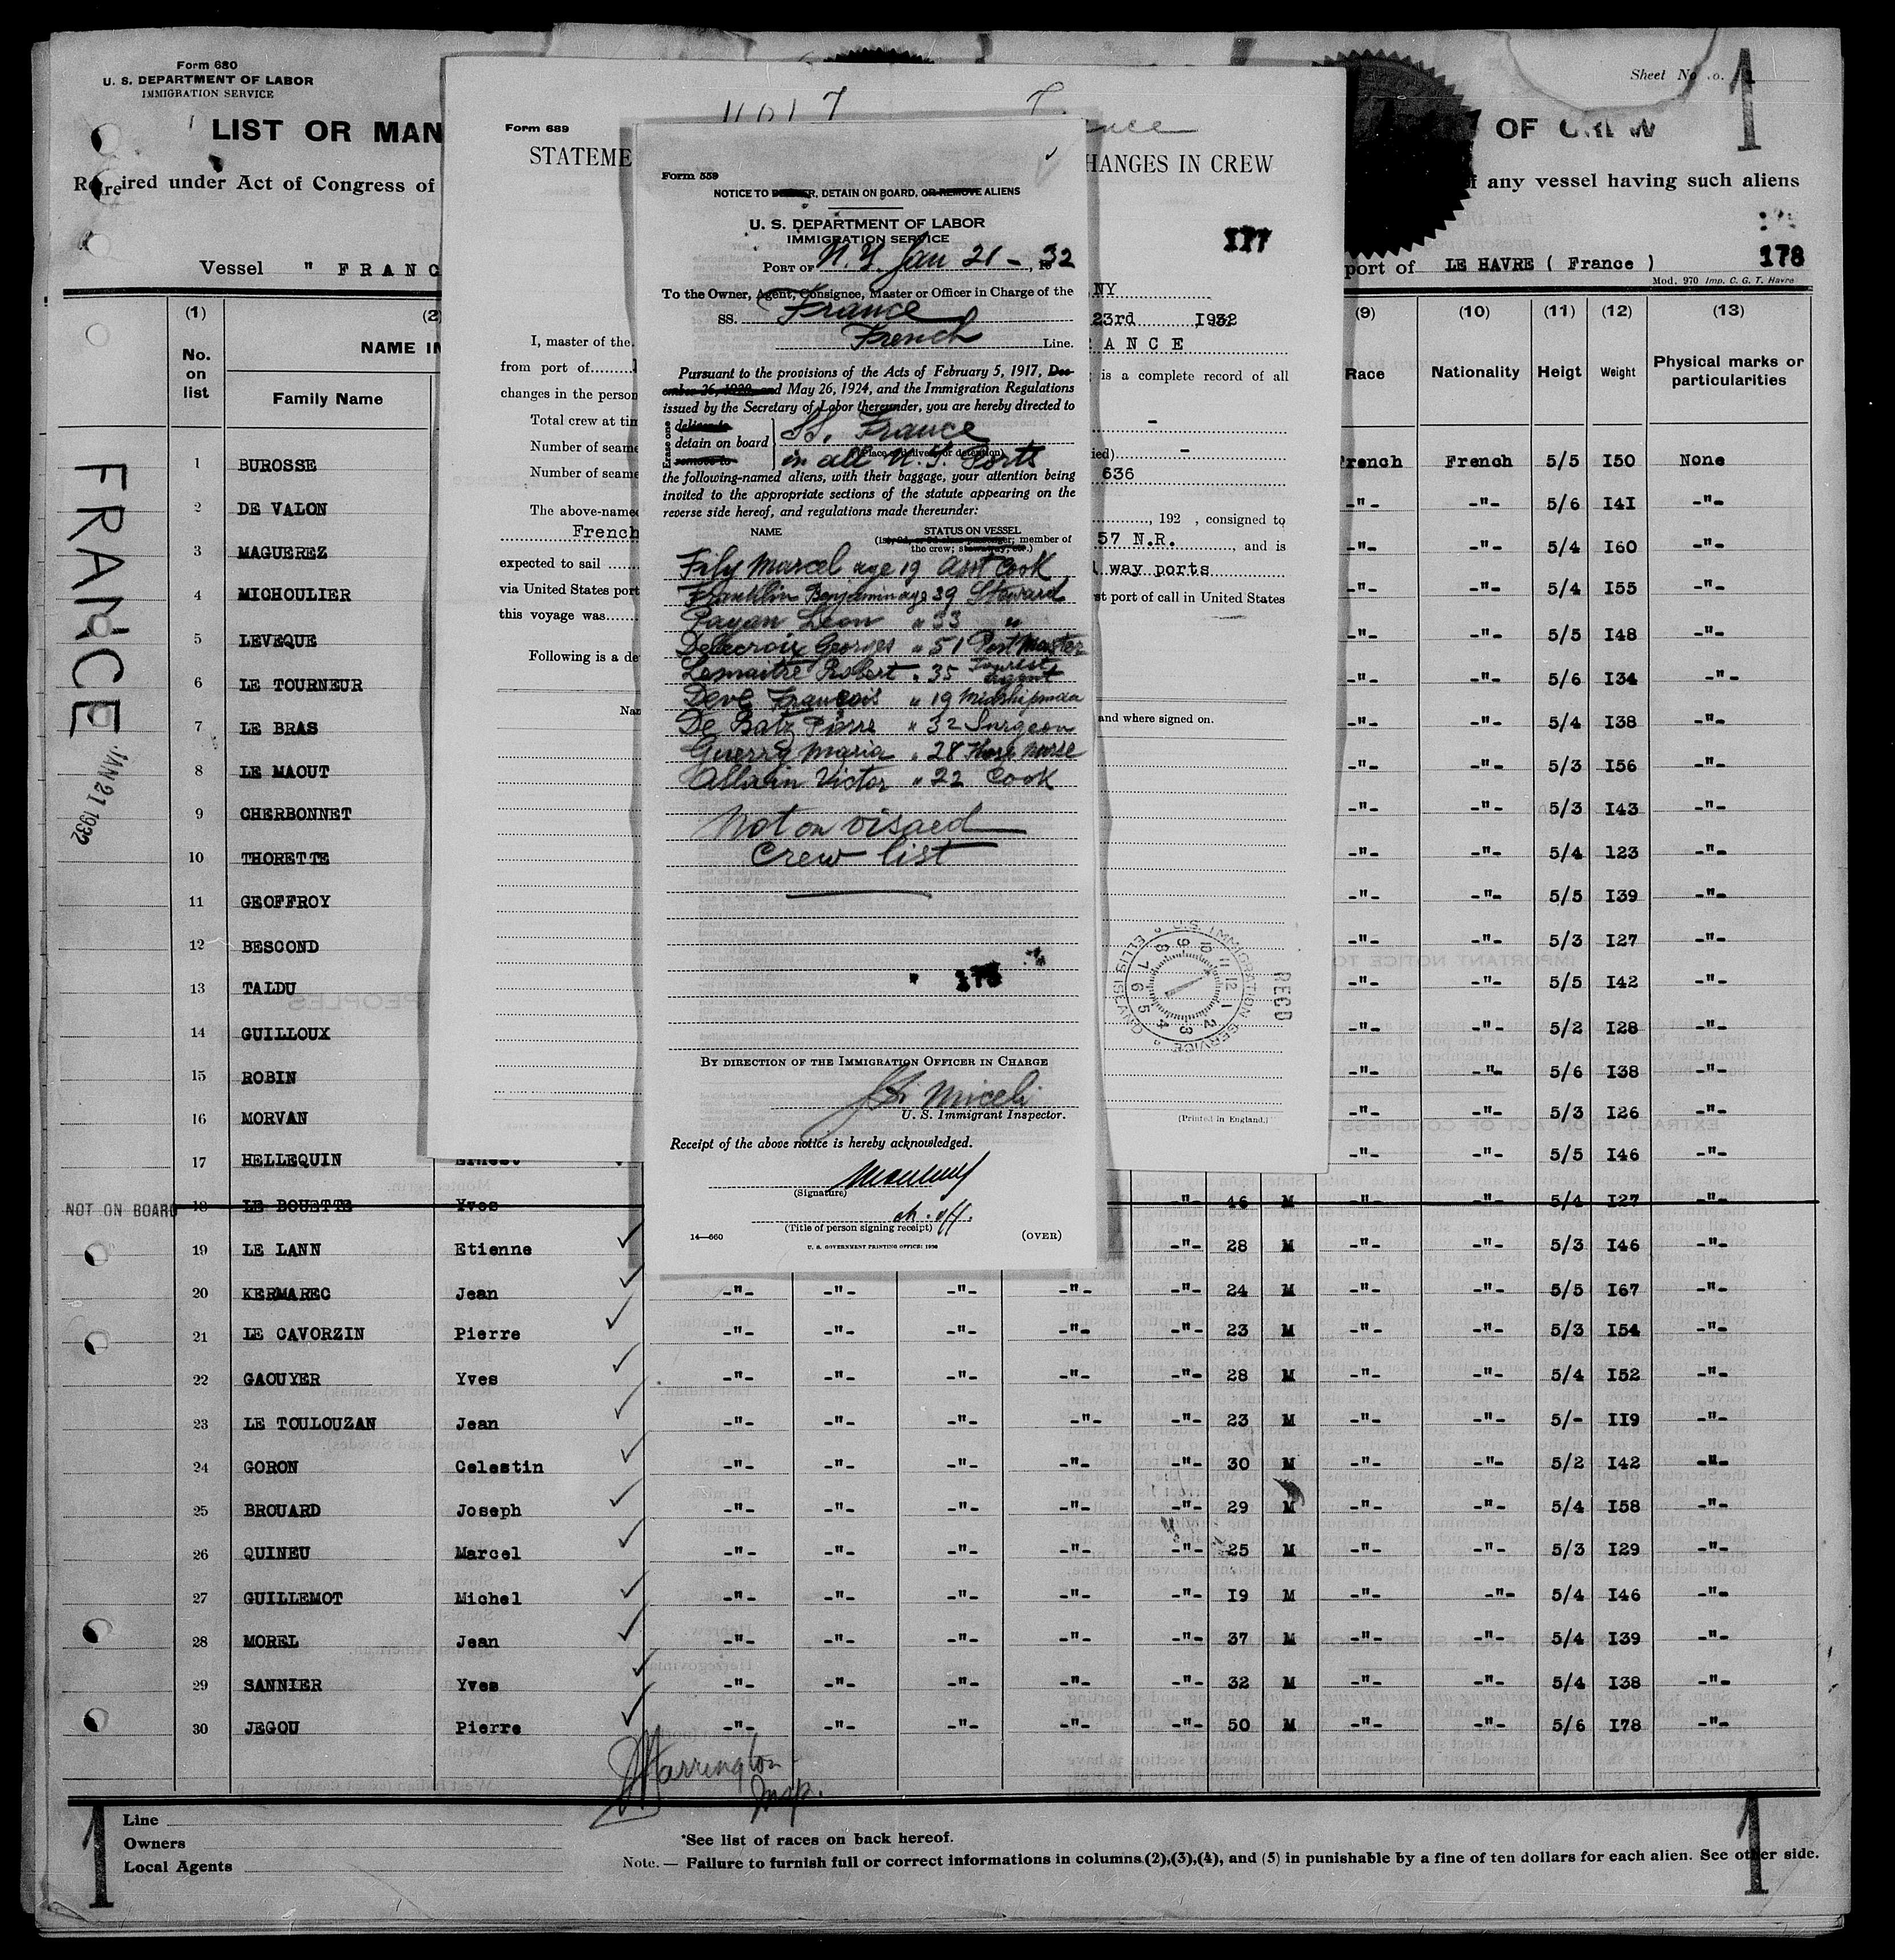 Form 680
U. S. DEPARTMENT OF LABOR
IMMIGRATION SERVICE
LIST OR MAN
ired under Act of Congress of
Vessel " FRANC
(1)
No.
on
list
NAME IN
Family Name
FRANCE
JAN 21 1932
1 BUROSSE
2 DE VALON
3 MAGUEREZ
4 MICHOULIER
5 LEVEQUE
6 LE TOURNEUR
7 LE BRAS
8 LE MAOUT
9 CHERBONNET
10 THORETTE
11 GEOFFROY
12 BESCOND
13 TALDU
14 GUILLOUX
15 ROBIN
16 MORVAN
17 HELLEQUIN Ernest
NOT ON BOARD 18 LE BOUETTE Yves -"- 46 M -"- -"- 5/4 I27
19 LE LANN Etienne -"- 28 M -"- -"- 5/3 I46 -"-
20 KERMAREC Jean -"- -"- -"- -"- -"- 24 M -"- -"- 5/5 I67 -"-
21 LE CAVORZIN Pierre -"- -"- -"- -"- -"- 23 M -"- -"- 5/3 I54 -"-
22 GAOUYER Yves -"- -"- -"- -"- -"- 28 M -"- -"- 5/4 I52 -"-
23 LE TOULOUZAN Jean -"- -"- -"- -"- -"- 23 M -"- -"- 5/- II9 -"-
24 GORON Celestin -"- -"- -"- -"- -"- 30 M -"- -"- 5/2 I42 -"-
25 BROUARD Joseph -"- -"- -"- -"- -"- 29 M -"- -"- 5/4 I58 -"-
26 QUINEU Marcel -"- -"- -"- -"- -"- 25 M -"- -"- 5/3 I29 -"-
27 GUILLEMOT Michel -"- -"- -"- -"- -"- I9 M -"- -"- 5/4 I46 -"-
28 MOREL Jean -"- -"- -"- -"- -"- 37 M -"- -"- 5/4 I39 -"-
29 SANNIER Yves -"- -"- -"- -"- -"- 32 M -"- -"- 5/4 I38 -"-
30 JEGOU Pierre -"- -"- -"- -"- -"- 50 M -"- -"- 5/6 I78 -"-
Harrington
Insp.
1
Line
Owners
Local Agents
*See list of races on back hereof.
Note. — Failure to furnish full or correct informations in columns (2),(3),(4), and (5) in punishable by a fine of ten dollars for each alien. See other side.
1
Form 689
STATEME
HANGES IN CREW
117
NY
23rd 1932
I, master of the
ANCE
from port of
is a complete record of all
changes in the person
Total crew at tim
Number of seame
Number of seame
636
The above-named
, 192 , consigned to
French
57 N.R. , and is
expected to sail
way ports
via United States port
st port of call in United States
this voyage was
Following is a de
and where signed on.
U.S. IMMIGRATION SERVICE
ELLIS ISLAND
RECD
(Printed in England.)
Form 559
NOTICE TO DELIVER, DETAIN ON BOARD, OR REMOVE ALIENS
U. S. DEPARTMENT OF LABOR
IMMIGRATION SERVICE
PORT OF N.Y. Jan 21 - , 1932
To the Owner, Agent, Consignee, Master or Officer in Charge of the
SS. France
French Line.
Pursuant to the provisions of the Acts of February 5, 1917, Dec-
ember 26, 1920, and May 26, 1924, and the Immigration Regulations
issued by the Secretary of Labor thereunder, you are hereby directed to
Erase one
deliver to
detain on board
remove to
SS. France
(Place of delivery or detention)
in all U.S. Ports
the following-named aliens, with their baggage, your attention being
invited to the appropriate sections of the statute appearing on the
reverse side hereof, and regulations made thereunder:
NAME STATUS ON VESSEL
(1st, 2d, or 3d class passenger; member of
the crew; stowaway, etc.)
Fily Marcel age 19 Asst Cook
Franklin Benjamin age 39 Steward
Payan Leon " 33 "
Delacroix Georges " 51 Post Master
Lemaitre Robert " 35 Tourist Agent
Deve Francois " 19 Midshipman
De Batz Pierre " 32 Surgeon
Guerry Maria " 28 nurse
Allain Victor " 22 Cook
Not on visaed
Crew list
178
BY DIRECTION OF THE IMMIGRATION OFFICER IN CHARGE
Miceli
U. S. Immigrant Inspector.
Receipt of the above notice is hereby acknowledged.
(Signature)
ch. off.
(Title of person signing receipt)
14—660
U. S. GOVERNMENT PRINTING OFFICE
(OVER)
Sheet No.
1
OF CREW
any vessel having such aliens
178
port of LE HAVRE ( France )
Mod. 970 Imp. C. G. T. Havre
(9) (10) (11) (12) (13)
Race Nationality Heigt Weight Physical marks or
particularities
French French 5/5 I50 None
-"- -"- 5/6 I4I -"-
-"- -"- 5/4 I60 -"-
-"- -"- 5/4 I55 -"-
-"- -"- 5/5 I48 -"-
-"- -"- 5/6 I34 -"-
-"- -"- 5/4 I38 -"-
-"- -"- 5/3 I56 -"-
-"- -"- 5/3 I43 -"-
-"- -"- 5/4 123 -"-
-"- -"- 5/5 I39 -"-
-"- -"- 5/3 I27 -"-
-"- -"- 5/5 I42 -"-
-"- -"- 5/2 I28 -"-
-"- -"- 5/6 I38 -"-
-"- -"- 5/3 I26 -"-
-"- -"- 5/5 I46 -"-